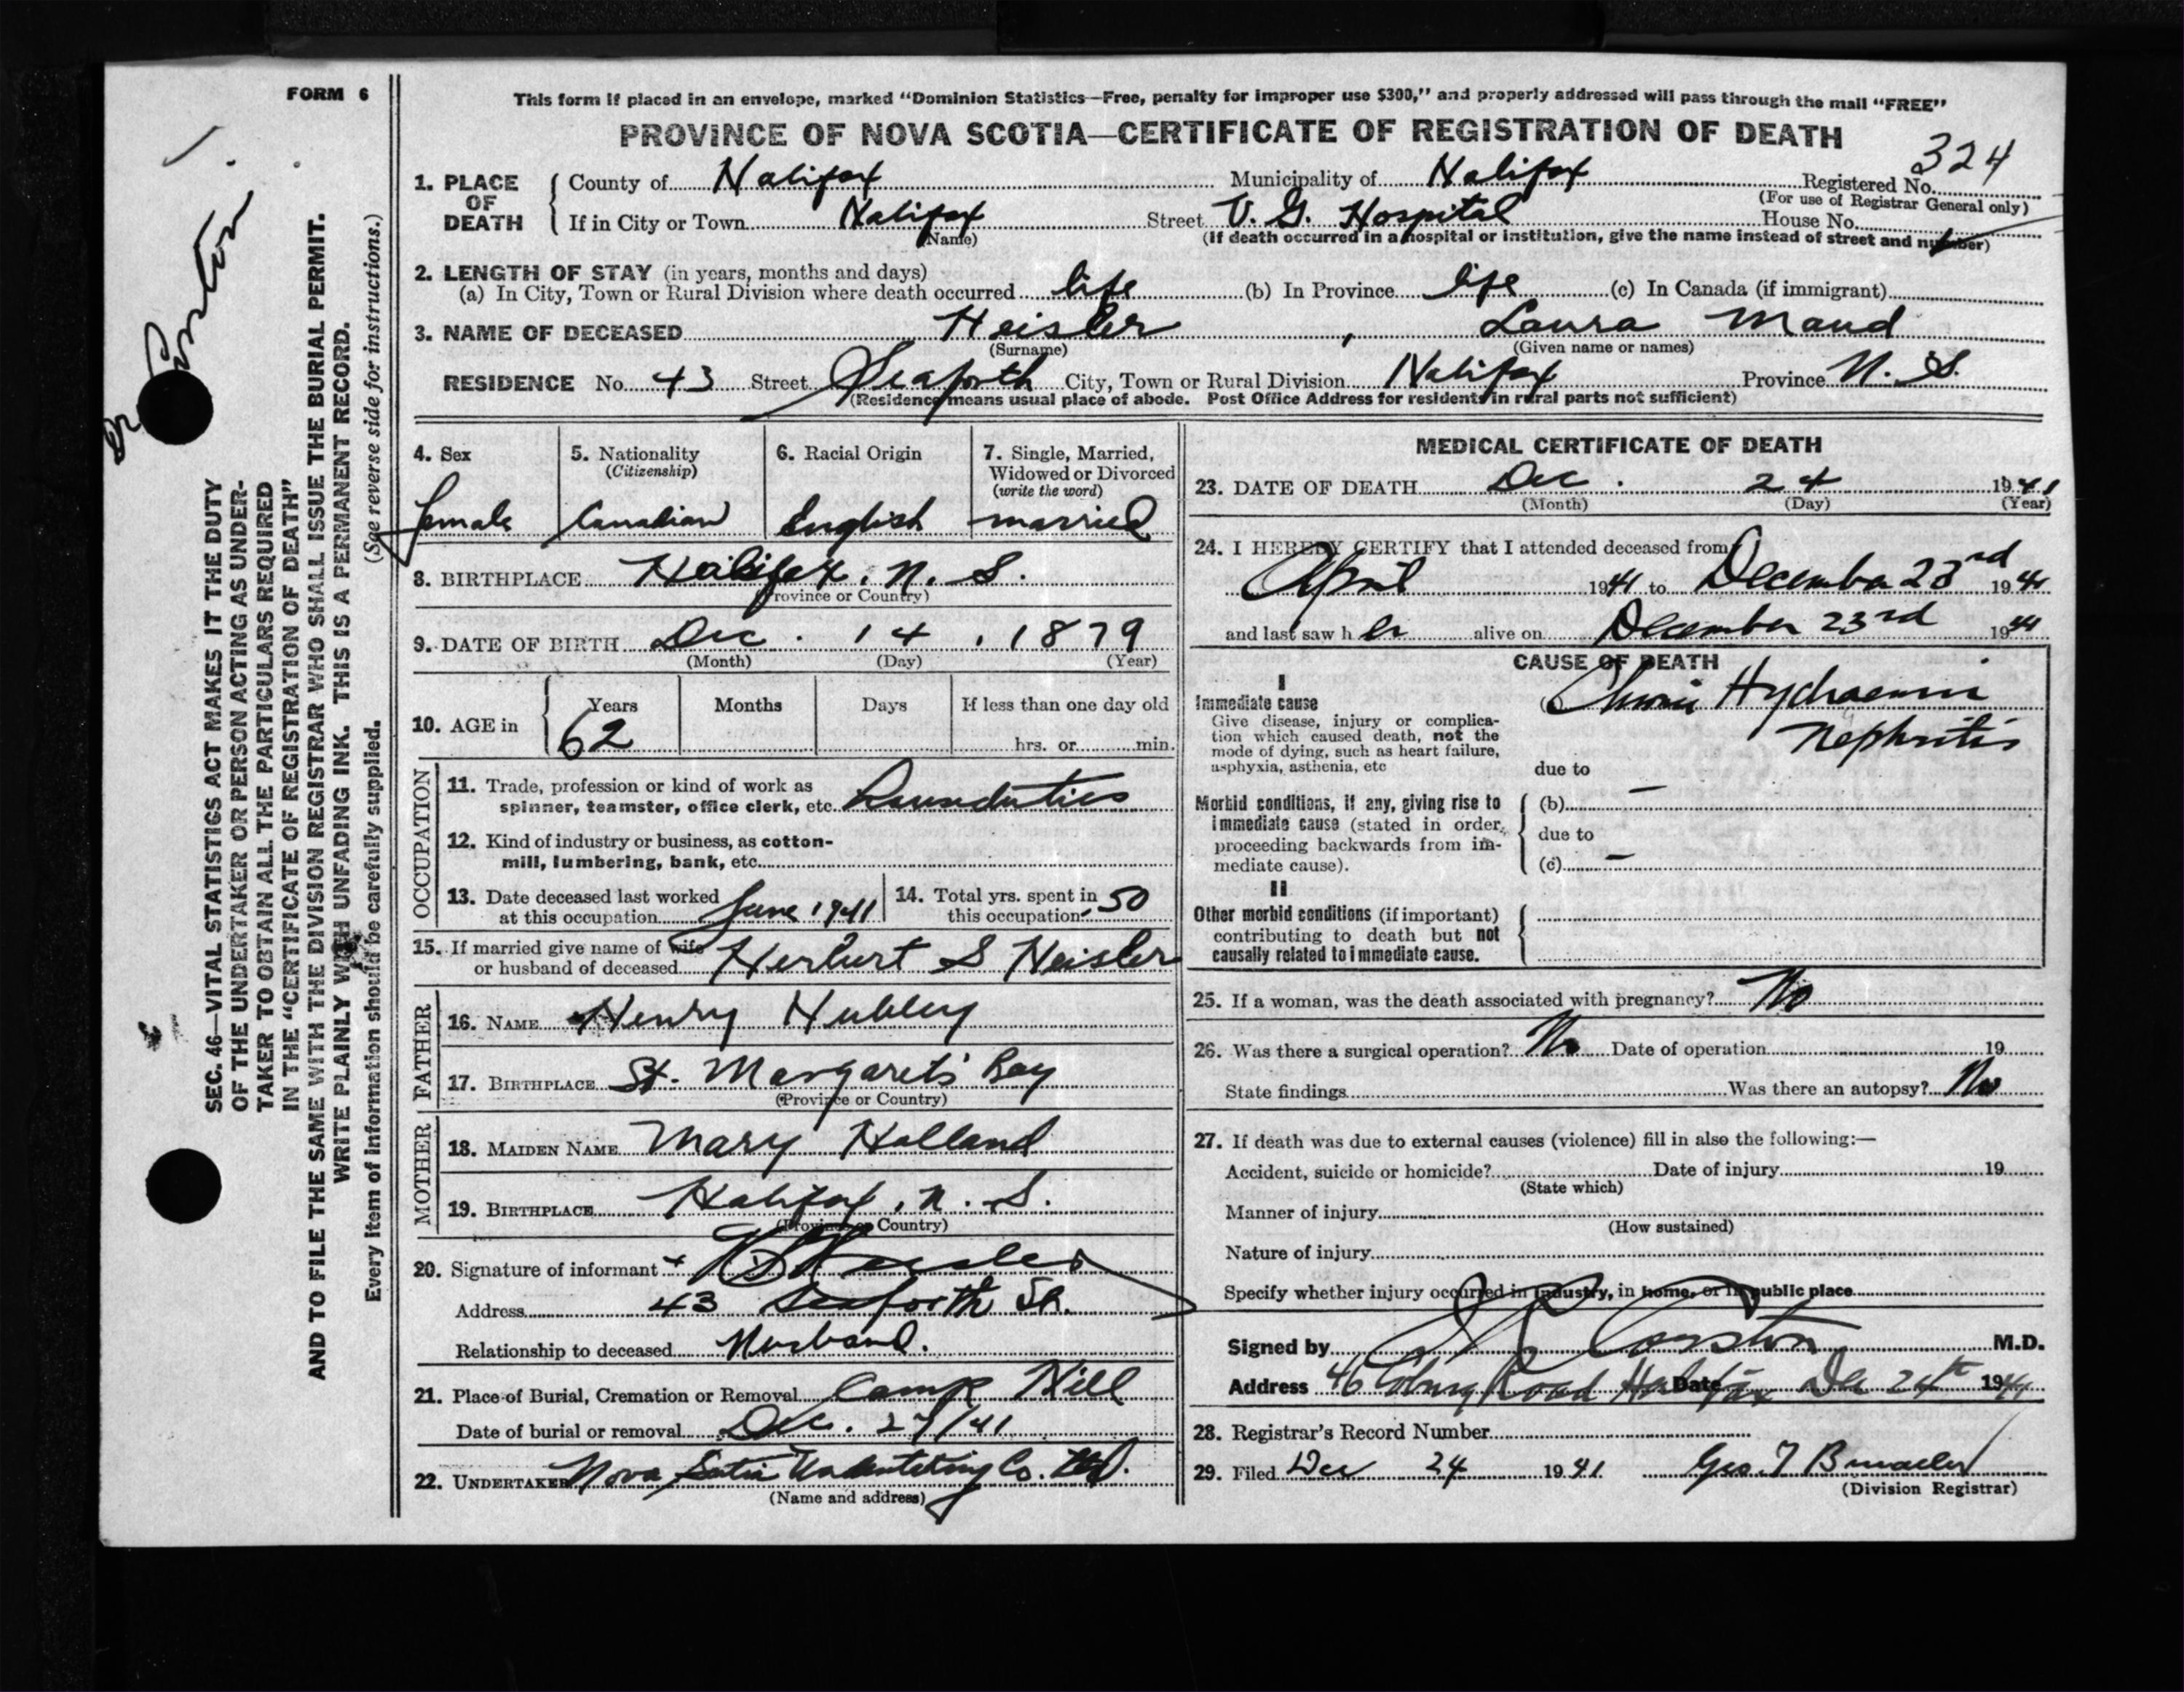 FORM 6
This form if placed in an envelope, marked "Dominion Statistics—Free, penalty for improper use $300," and properly addressed will pass through the mail "FREE"
PROVINCE OF NOVA SCOTIA—CERTIFICATE OF REGISTRATION OF DEATH
324
1. PLACE OF DEATH
County of Halifax Municipality of Halifax Registered No.
(For use of Registrar General only)
If in City or Town Halifax Street V. G. Hospital House No.
(Name) (If death occurred in a hospital or institution, give the name instead of street and number)
2. LENGTH OF STAY (in years, months and days)
(a) In City, Town or Rural Division where death occurred life (b) In Province life (c) In Canada (if immigrant)
3. NAME OF DECEASED Heisler, Laura Maud
(Surname) (Given name or names)
RESIDENCE No. 43 Street Seaforth City, Town or Rural Division Halifax Province N. S.
(Residence means usual place of abode. Post Office Address for residents in rural parts not sufficient)
4. Sex 5. Nationality 6. Racial Origin 7. Single, Married,
(Citizenship) Widowed or Divorced
(write the word)
female Canadian English married
8. BIRTHPLACE Halifax, N. S.
(Province or Country)
9. DATE OF BIRTH Dec. 14, 1879
(Month) (Day) (Year)
10. AGE in Years Months Days If less than one day old
62 hrs. or min.
OCCUPATION
11. Trade, profession or kind of work as
spinner, teamster, office clerk, etc. Houseduties
12. Kind of industry or business, as cotton-
mill, lumbering, bank, etc.
13. Date deceased last worked 14. Total yrs. spent in
at this occupation June 1941 this occupation 50
15. If married give name of wife
or husband of deceased Herbert S Heisler
FATHER
16. NAME Henry Hubley
17. BIRTHPLACE St. Margarets Bay
(Province or Country)
MOTHER
18. MAIDEN NAME Mary Holland
19. BIRTHPLACE Halifax, N. S.
(Province or Country)
20. Signature of informant H S Heisler
Address 43 Seaforth St.
Relationship to deceased Husband.
21. Place of Burial, Cremation or Removal Camp Hill
Date of burial or removal Dec. 27/41
22. UNDERTAKER Nova Scotia Undertaking Co. Ltd.
(Name and address)
MEDICAL CERTIFICATE OF DEATH
23. DATE OF DEATH Dec. 24 1941
(Month) (Day) (Year)
24. I HEREBY CERTIFY that I attended deceased from
April 1941 to December 23rd 1941
and last saw h er alive on December 23rd 1941
CAUSE OF DEATH
I
Immediate cause
Give disease, injury or complica-
tion which caused death, not the
mode of dying, such as heart failure,
asphyxia, asthenia, etc
(a) Chronic Hydraemic
Nephritis
due to
Morbid conditions, if any, giving rise to
immediate cause (stated in order,
proceeding backwards from im-
mediate cause).
(b) —
due to
(c) —
II
Other morbid conditions (if important)
contributing to death but not
causally related to immediate cause.
25. If a woman, was the death associated with pregnancy? No
26. Was there a surgical operation? No Date of operation 19
State findings Was there an autopsy? No
27. If death was due to external causes (violence) fill in also the following:—
Accident, suicide or homicide? Date of injury 19
(State which)
Manner of injury
(How sustained)
Nature of injury
Specify whether injury occurred in industry, in home, or in public place
Signed by Corston M.D.
Address 46 Coburg Road Halifax Date Dec 24th 1941
28. Registrar's Record Number
29. Filed Dec 24 1941 Geo. T
(Division Registrar)
Dr Corston
SEC. 46—VITAL STATISTICS ACT MAKES IT THE DUTY
OF THE UNDERTAKER OR PERSON ACTING AS UNDER-
TAKER TO OBTAIN ALL THE PARTICULARS REQUIRED
IN THE "CERTIFICATE OF REGISTRATION OF DEATH"
AND TO FILE THE SAME WITH THE DIVISION REGISTRAR WHO SHALL ISSUE THE BURIAL PERMIT.
WRITE PLAINLY WITH UNFADING INK. THIS IS A PERMANENT RECORD.
Every item of information should be carefully supplied. (See reverse side for instructions.)